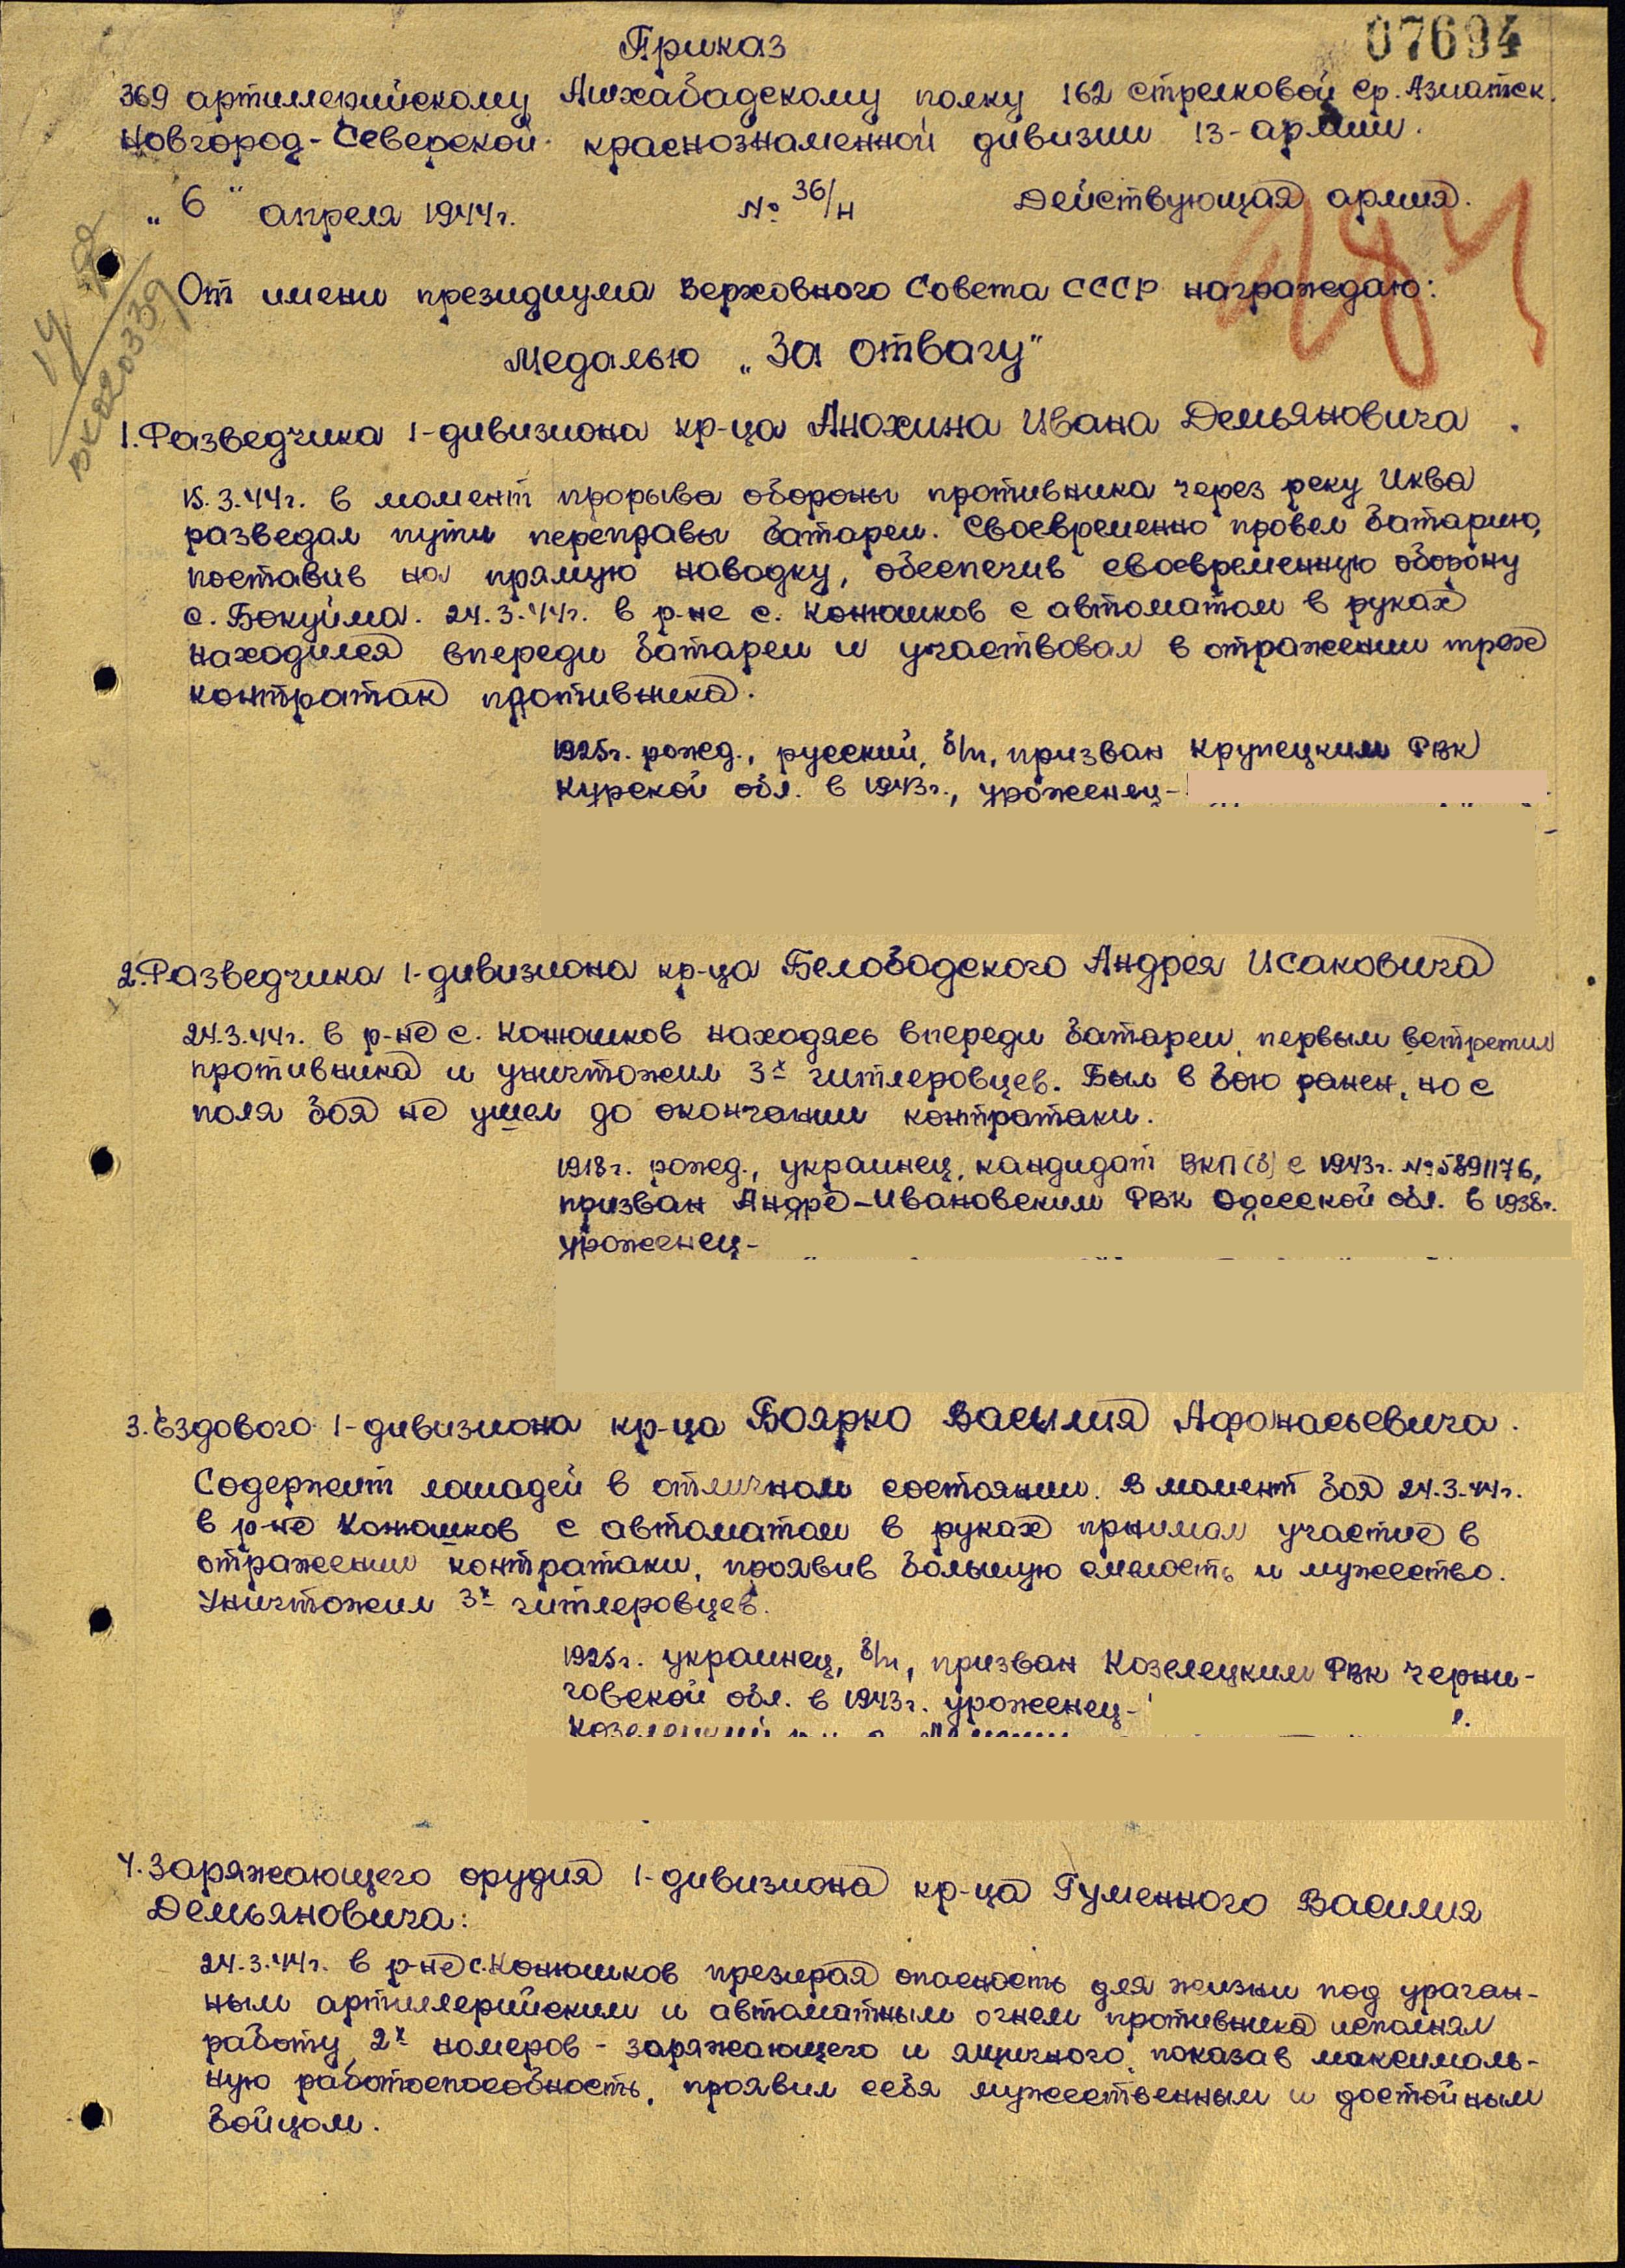 07694
Приказ
369 артиллерийскому Ашхабадскому полку 162 стрелковой Ср. Азиатск.
Новгород-Северской краснознаменной дивизии 13-армии.
„6" апреля 1944г. № 36/н Действующая армия.
284
14
ВК820339
От имени президиума Верховного Совета СССР награждаю:
Медалью „За отвагу"
1. Разведчика 1-дивизиона кр-ца Анохина Ивана Демьяновича.
15.3.44г. в момент прорыва обороны противника через реку Иква
разведал пути переправы батареи. Своевременно провел батарию,
поставив на прямую наводку, обеспечив своевременную оборону
с. Бокуйма. 24.3.44г. в р-не с. Конюшков с автоматом в руках
находился впереди батареи и участвовал в отражении трех
контратак противника.
1925г. рожд., русский, б/п, призван Крупецким РВК
Курской обл. в 1943г., уроженец-
2. Разведчика 1-дивизиона кр-ца Белободского Андрея Исаковича
24.3.44г. в р-не с. Конюшков находясь впереди батареи, первым встретил
противника и уничтожил 3х гитлеровцев. Был в бою ранен, но с
поля боя не ушел до окончании контратаки.
1918г. рожд., украинец, кандидат ВКП(б) с 1943г. №5891176,
призван Андре-Ивановским РВК Одесской обл. в 1938г.
уроженец-
3. Ездового 1-дивизиона кр-ца Боярко Василия Афонасьевича.
Содержит лошадей в отличном состоянии. В момент боя 24.3.44г.
в р-не Конюшков с автоматом в руках принимал участие в
отражении контратаки, проявив большую смелость и мужество.
Уничтожил 3х гитлеровцев.
1925г. украинец, б/п, призван Козелецким РВК Черни-
говской обл. в 1943г. уроженец-
Козелецкий
4. Заряжающего орудия 1-дивизиона кр-ца Гуменного Василия
Демьяновича:
24.3.44г. в р-не с. Конюшков презирая опасность для жизни под ураган-
ным артиллерийским и автоматным огнем противника исполнял
работу 2х номеров - заряжающего и ящичного, показав максималь-
ную работоспособность, проявил себя мужественным и достойным
бойцом.